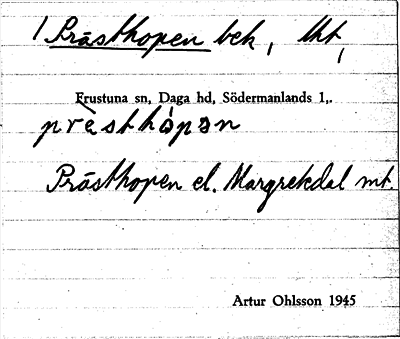 1 Prästhopen bek, Ukt,
Frustuna sn, Daga hd, Södermanlands l,.
prèsthópən
Prästhopen el. Margretedal mt.
Artur Ohlsson 1945